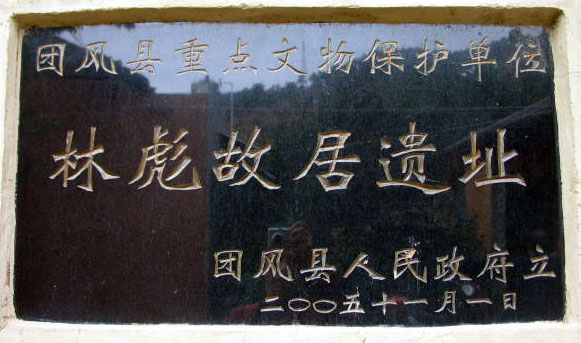 团风县重点文物保护单位
林彪故居遗址
团风县人民政府立
二〇〇五十一月一日